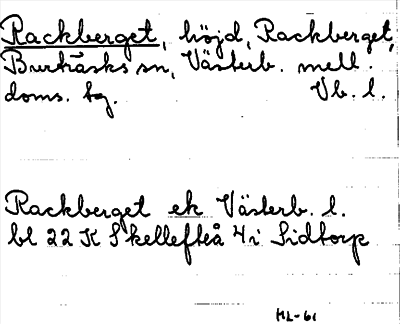 Rackberget, höjd, Rackberget,
Burträsks sn, Västerb. mell.
doms. tg. Vb. l.
Rackberget ek Västerb. l.
bl 22 K Skellefteå 4i Sidtorp
ML-61